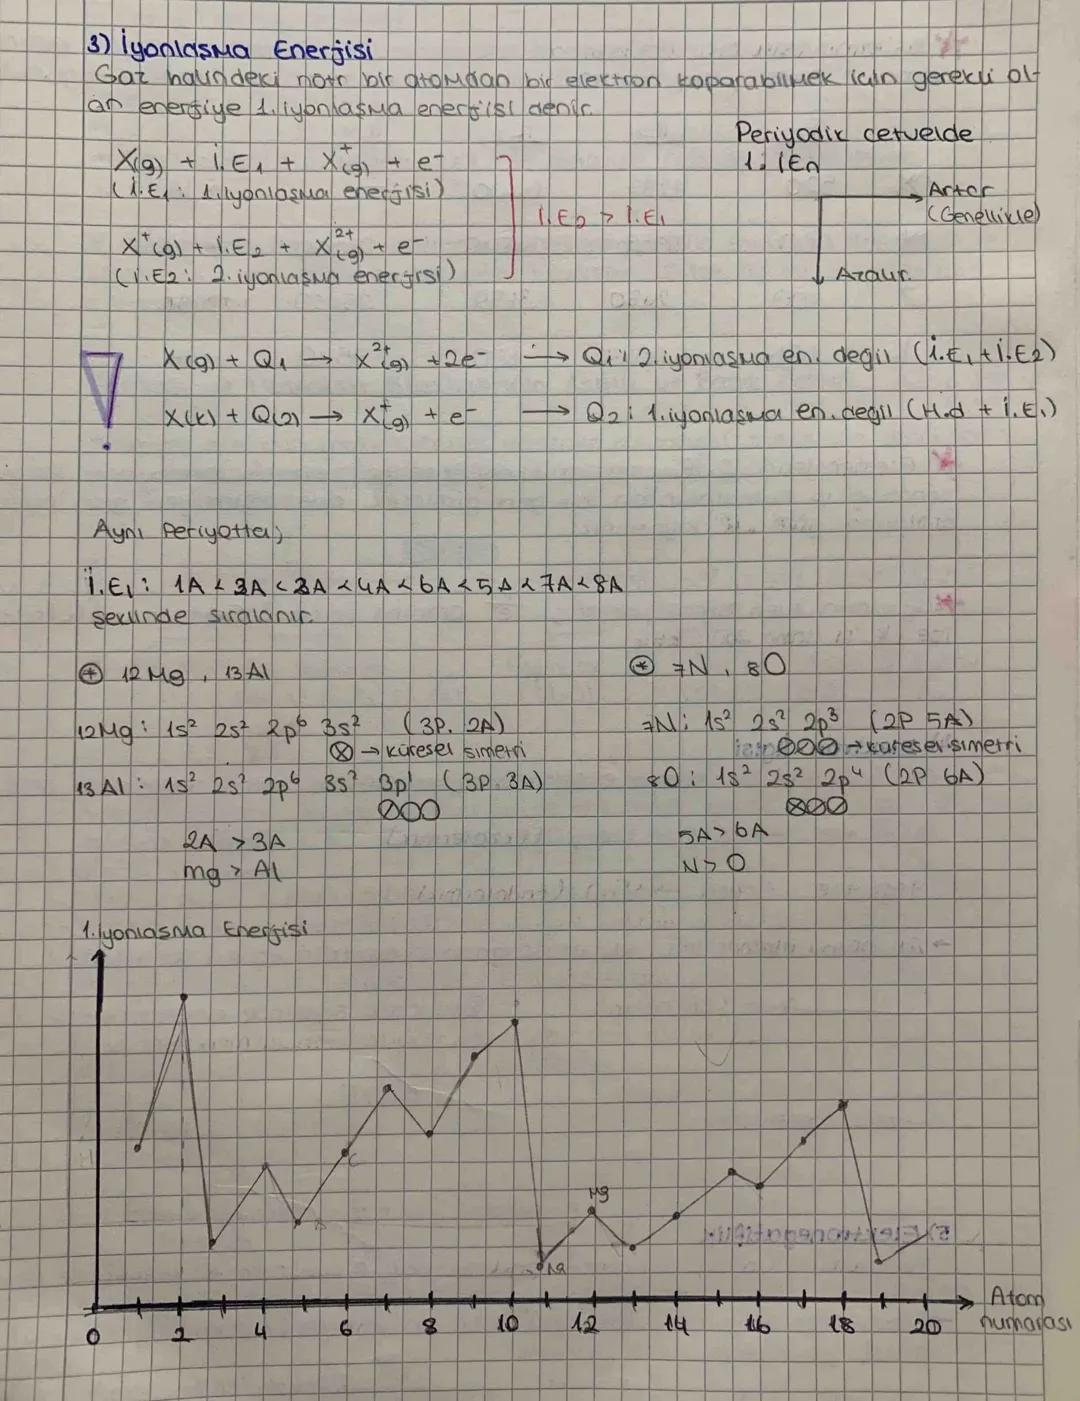 3) İyonlaşma Enerjisi
Gaz halindeki nötr bir atomdan bir elektron koparabilmek için gerekli ol-
an enerjiye 1. iyonlaşma enerjisi denir.
Periyodik cetvelde
1. İEn
Artar
(Genellikle)
Azalır.
X(g) + İ.E₁ + X⁺(g) + e⁻
(İ.E₁: 1. iyonlaşma enerjisi)
İ.E₂ > İ.E₁
X⁺(g) + İ.E₂ + X²⁺(g) + e⁻
(İ.E₂: 2. iyonlaşma enerjisi)
X(g) + Q₁ → X²⁺(g) + 2e⁻ → Q₁: 2. iyonlaşma en. değil (İ.E₁ + İ.E₂)
X(k) + Q(2) → X⁺(g) + e⁻ → Q₂: 1. iyonlaşma en. değil (H.d + İ.E₁)
Aynı Periyotta;
İ.E₁: 1A < 3A < 2A < 4A < 6A < 5A < 7A < 8A
şeklinde sıralanır.
* 12Mg, 13Al
12Mg: 1s² 2s² 2p⁶ 3s² (3P. 2A)
→ küresel simetri
13Al: 1s² 2s² 2p⁶ 3s² 3p¹ (3P. 3A)
2A > 3A
mg > Al
* 7N, 8O
7N: 1s² 2s² 2p³ (2P 5A)
→ küresel simetri
8O: 1s² 2s² 2p⁴ (2P 6A)
5A > 6A
N > O
1. İyonlaşma Enerjisi
C
Mg
Na
5) Elektronegatiflik
0 2 4 6 8 10 12 14 16 18 20
Atom
numarası